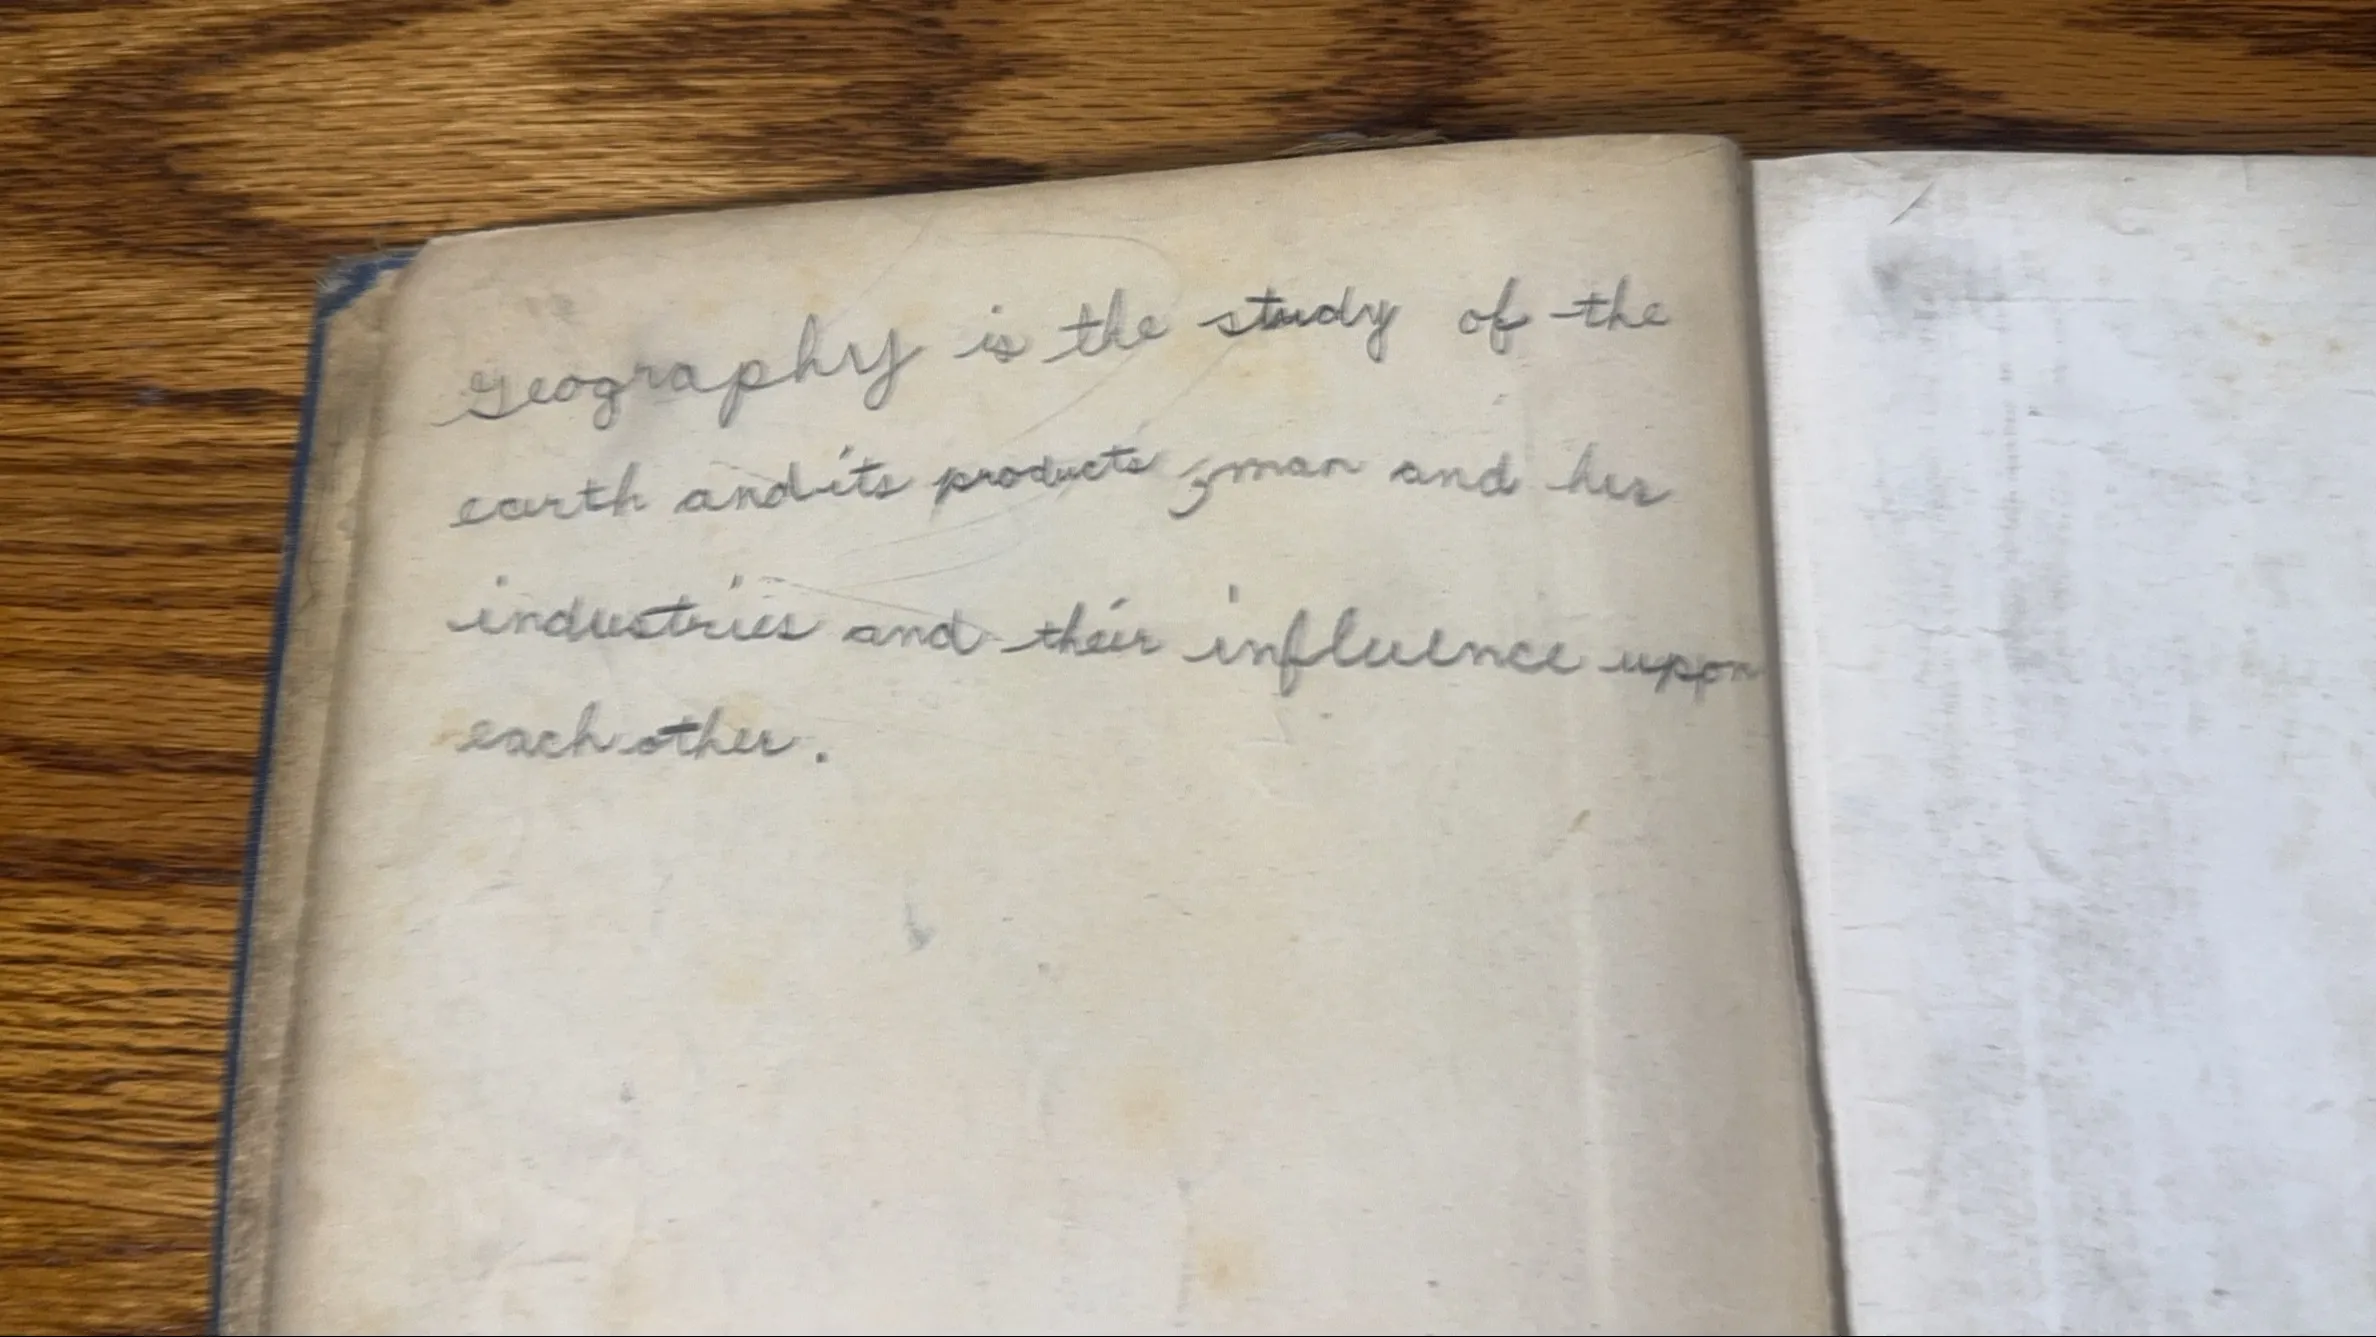 Geography is the study of the
earth and its products, man and his
industries and their influence upon
each other.